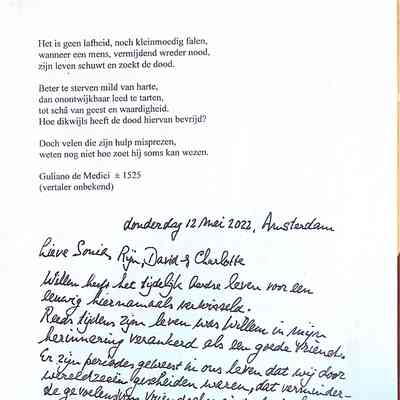 Het is geen lafheid, noch kleinmoedig falen,
wanneer een mens, vermijdend wreder nood,
zijn leven schuwt en zoekt de dood.
Beter te sterven mild van harte,
dan onontwijkbaar leed te tarten,
tot schâ van geest en waardigheid.
Hoe dikwijls heeft de dood hiervan bevrijd?
Doch velen die zijn hulp misprezen,
weten nog niet hoe zoet hij soms kan wezen.
Guliano de Medici ± 1525
(vertaler onbekend)
donderdag 12 mei 2022, Amsterdam
Lieve Sonia, Rijn, David & Charlotte
Willem heeft het tijdelijk aardse leven voor een
eeuwig hiernamaals verwisseld.
Reeds tijdens zijn leven was Willem in mijn
herinnering verankerd als een goede vriend.
Er zijn periodes geweest in ons leven dat wij door
wereldzeeën gescheiden waren, dat verminder-
de gevoelens van